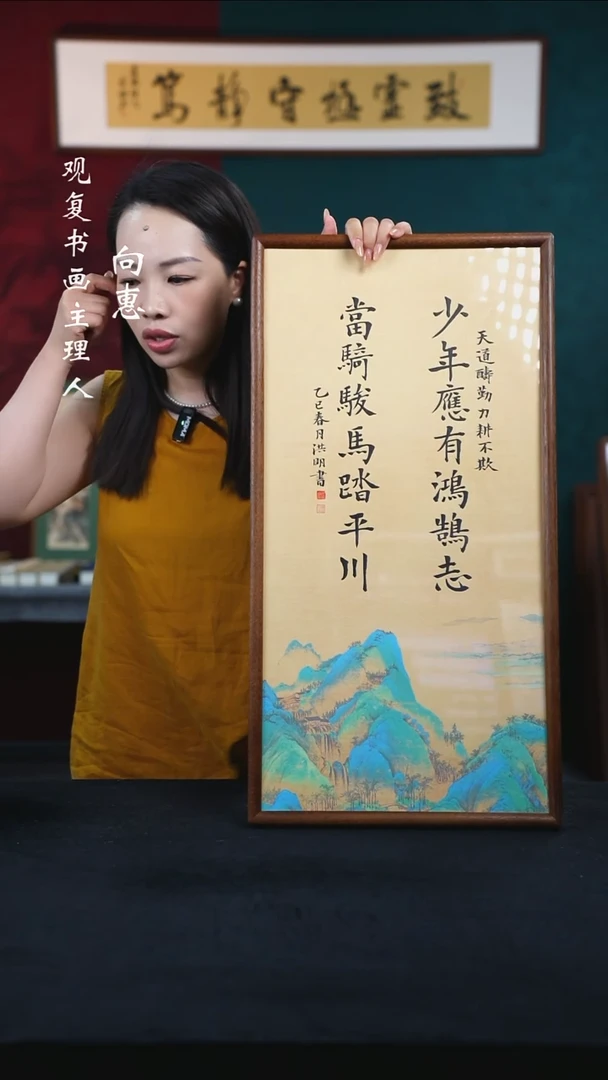 致虛極守靜篤
观复书画主理人
向惠
天道酬勤力耕不欺
少年應有鴻鵠志
當騎駿馬踏平川
乙巳春月洪明書